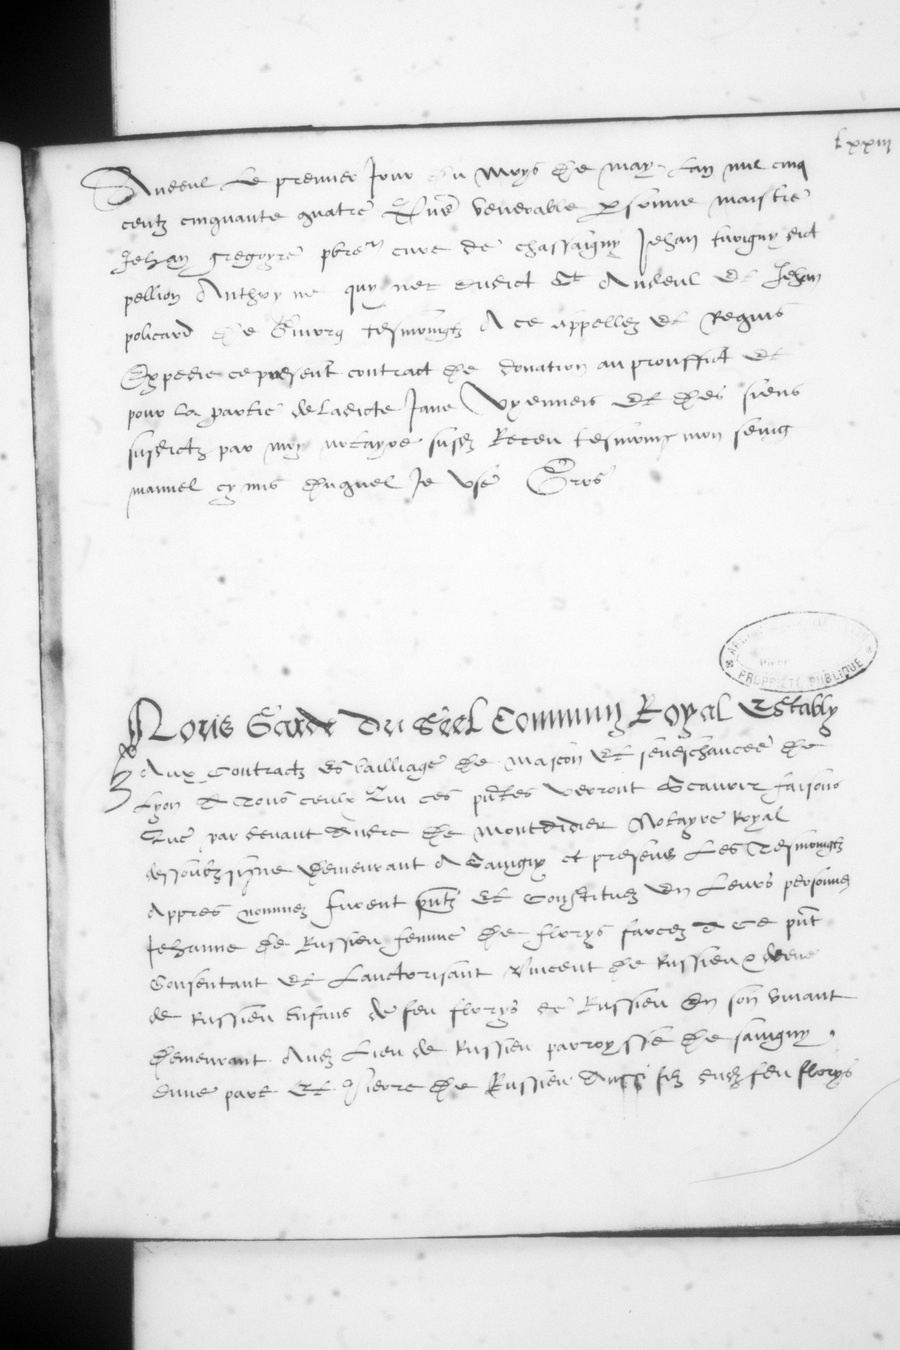 lxxiii
Andeul Le premier Jour du moys de may Lan mil cinq
centz cinquante quatre venerable personne maistre
Jehan gregoyre pbre cure de chassaigny Jehan dict
pellion Anthoyne dudict Andeul Et Jehan
policard de tesmoingtz A ce appellez Et Requis
Expedie ce present contract de donation au prouffict Et
pour la partie de Ladicte Jane Et des siens
susdictz par moy notayre susdt Receu tesmoing mon seing
manuel cy mis duquel Je Use Gros
PROPRIÉTÉ PUBLIQUE
Noris Garde du Seel Commung Royal Estably
Aux Contractz es bailliage de mascon Et seneschaucee de
Lyon A Tous ceulx Qui ces pntes verront Scavoir faisons
Que par devant de Montdidier Notayre Royal
dessoubzsigne demeurant A Savigny et presens Les Tesmoingtz
Appres nommez furent pntz Et Constituez En Leurs personnes
Jehanne de Russieu femme de florys A Ce pnt
Consentant Et Lauctorisant Vincent de Russieu
de Russieu enfans de feu florys de Russieu En son vivant
demeurant Lieu de Russieu parroysse de savigny
dune part Et Pierre de Russieu Aussi filz dudt feu florys